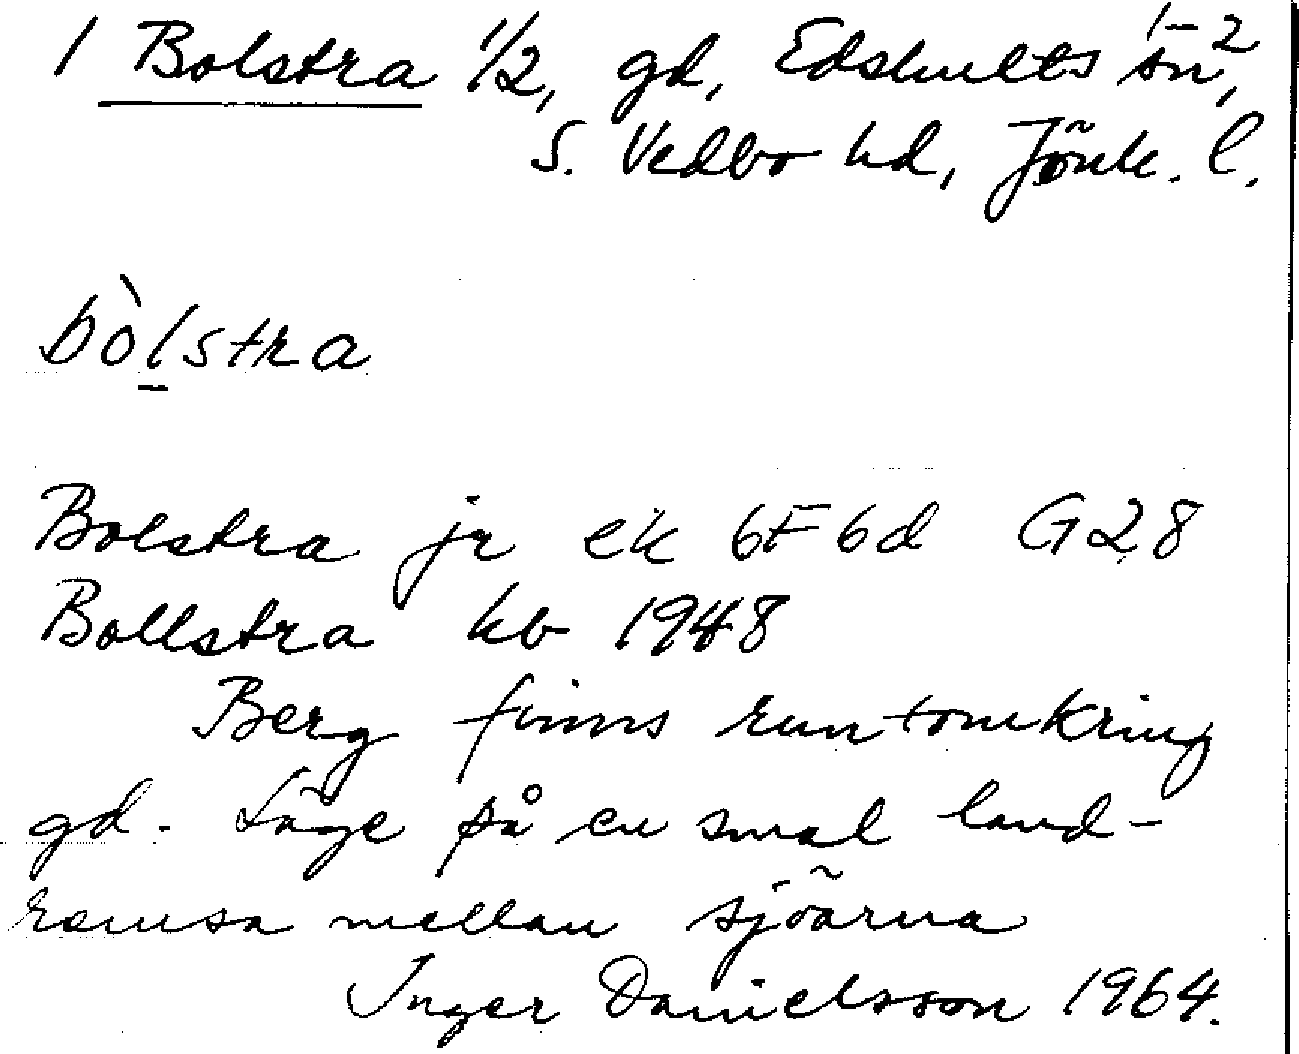 1 Bolstra 1/2, gd, Edshults sn, 1-2
S. Vedbo hd, Jönk. l.
bòlstra
Bolstra jr ek 6F6d G28
Bollstra kb 1948
Berg finns runtomkring
gd. Läge på en smal land-
remsa mellan sjöarna
Inger Danielsson 1964.